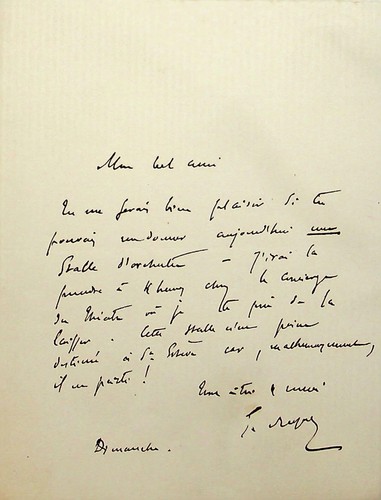 Mon bel ami
Tu me ferais bien plaisir si tu
pouvais me donner aujourd'hui une
Stalle d'orchestre – J'irai la
prendre à heures chez le concierge
du Théâtre où je te prie de la
laisser. Cette stalle n'est
destiné à car, malheureusement,
il est parti !
à & merci
Dimanche.